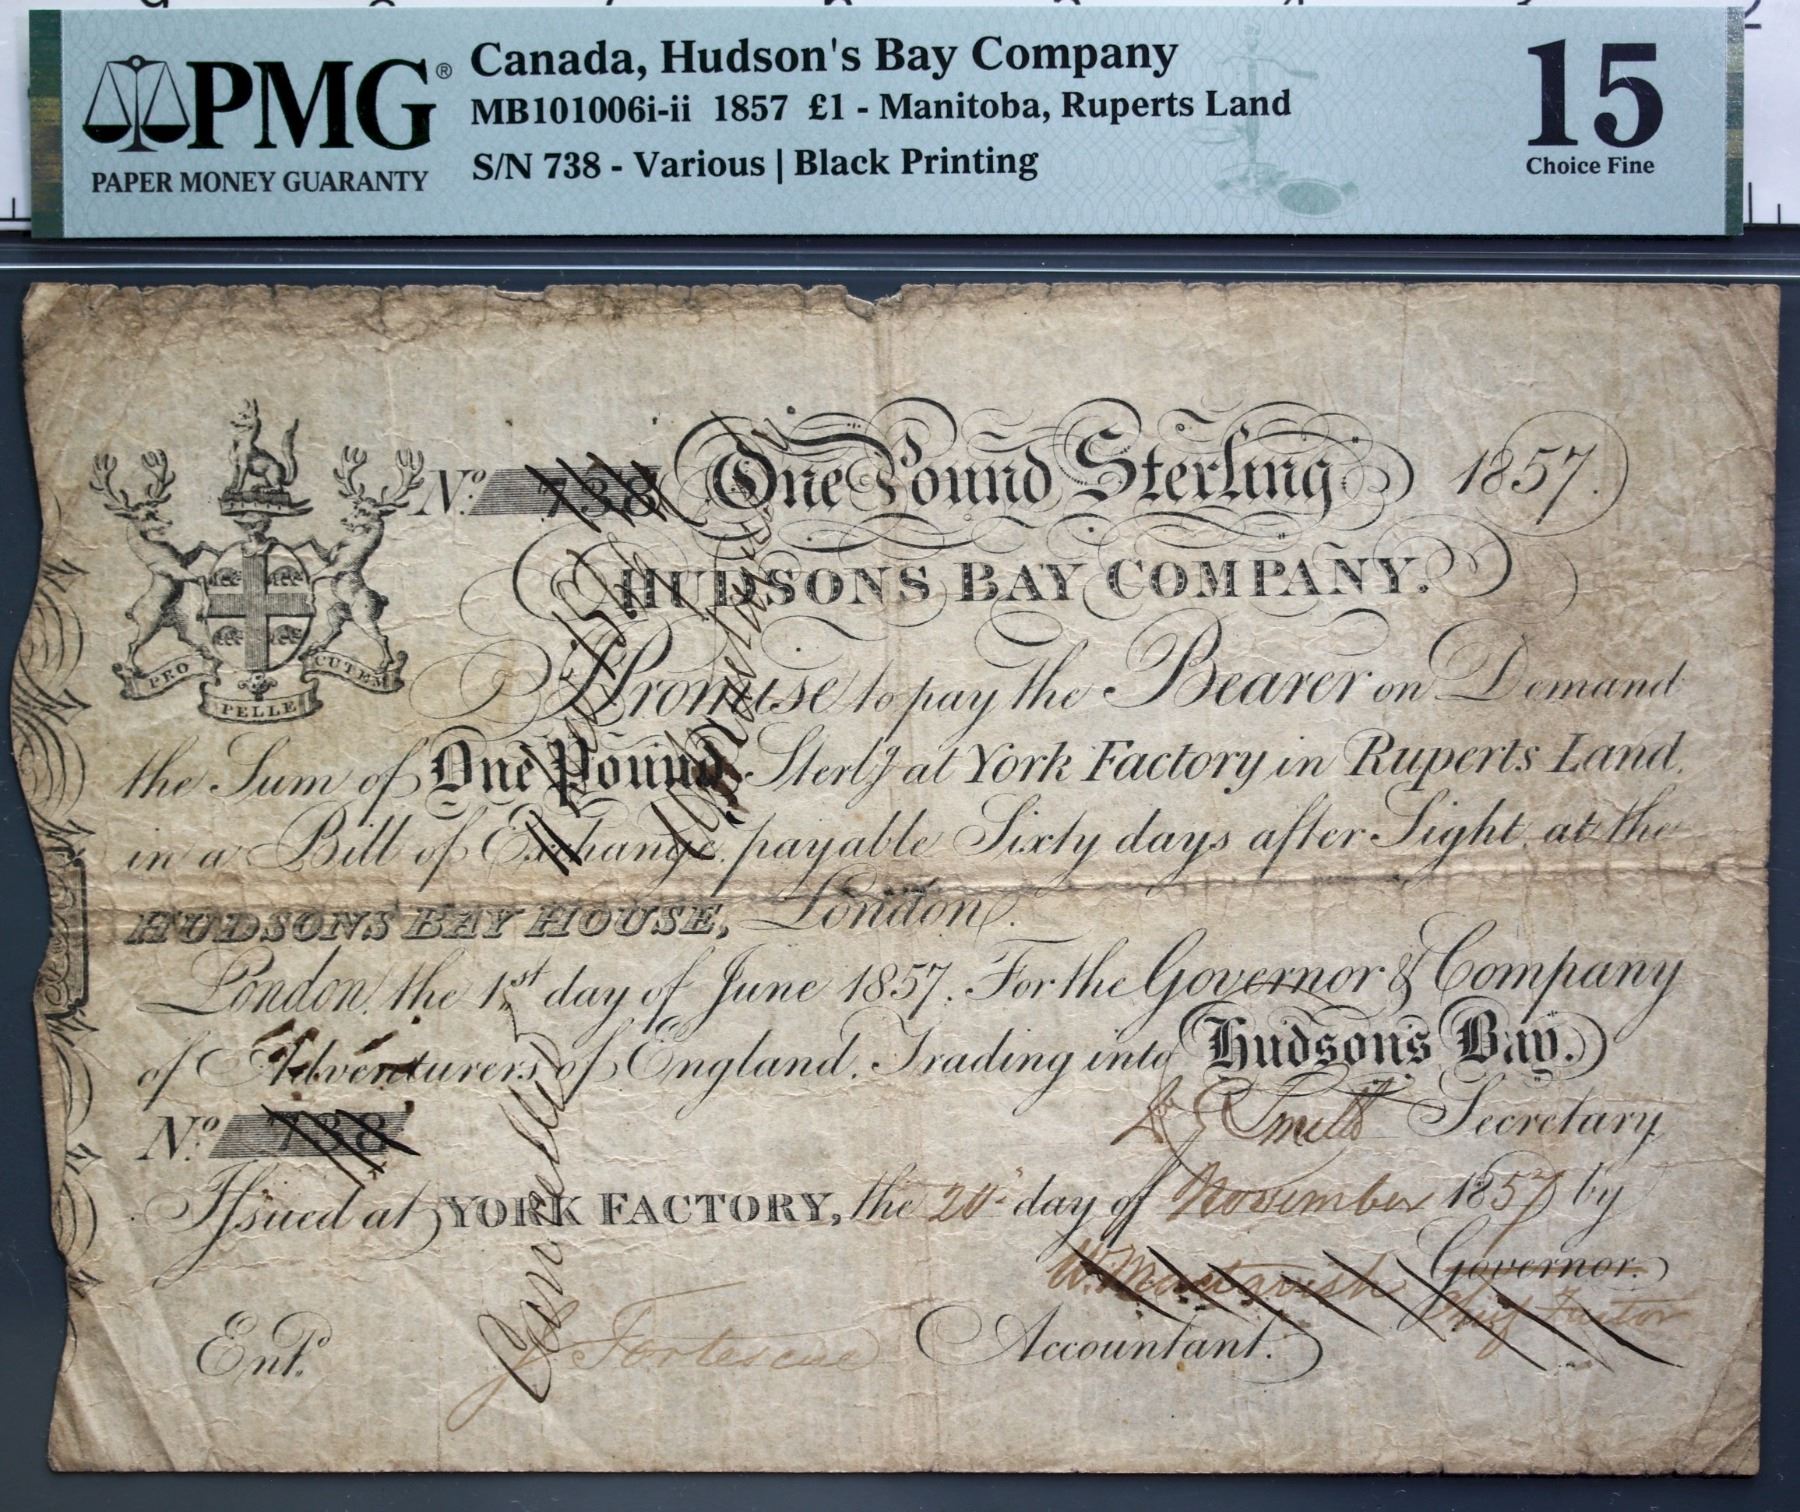 PMG®
PAPER MONEY GUARANTY
Canada, Hudson's Bay Company
MB101006i-ii 1857 £1 - Manitoba, Ruperts Land
S/N 738 - Various | Black Printing
15
Choice Fine
No. 738 One Pound Sterling 1857.
HUDSONS BAY COMPANY.
Promise to pay the Bearer on Demand
the Sum of One Pound Sterlg at York Factory in Ruperts Land
in a Bill of Exchange, payable Sixty days after Sight, at the
HUDSONS BAY HOUSE, London.
London, the 1st day of June 1857. For the Governor & Company
of Adventurers of England, Trading into Hudson's Bay.
No. 738
Smith Secretary
Issued at YORK FACTORY, the day of November 1857 by
W. Mactavish Governor.
Chief Factor
Entd. J Fortescue Accountant.
PRO
PELLE
CUTEM
Cancelled